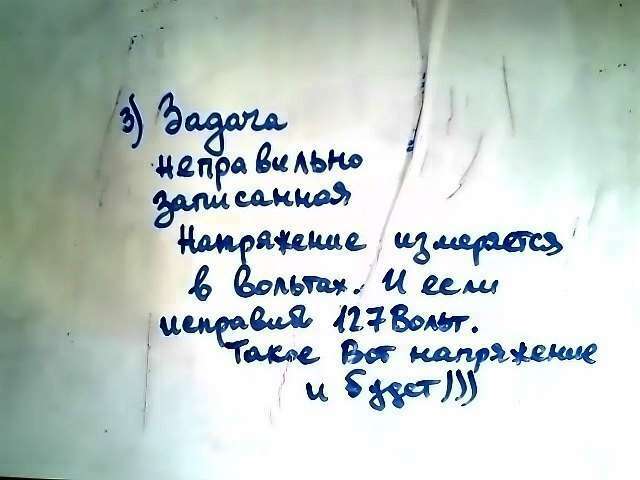 3) Задача
неправильно
записанная
Напряжение измеряется
в Вольтах. И если
исправить 127 Вольт.
Такое Вот напряжение
и будет)))